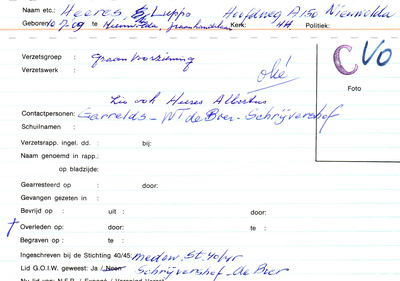 Naam etc.: Heeres, Luppo Hoofdweg A150 Nieuwolda
Geboren: 10.7.09 te Nieuwolda, graanhandelaar Kerk: NH Politiek:
CVO
Verzetsgroep : graanvoorziening
Verzetswerk :
oké
Foto
Zie ook Heeres Albertus
Contactpersonen: Garrelds - WT de Boer - Schrijvershof
Schuilnaam :
Verzetsrapp. ingel. dd. : bij:
Naam genoemd in rapp.:
op bladzijde:
Gearresteerd op : door:
Gevangen gezeten in :
Bevrijd op : uit : door:
† Overleden op: door: te :
Begraven op : te :
Ingeschreven bij de Stichting 40/45: medew. St. 40/45
Lid G.O.I.W. geweest: Ja / Neen Schrijvershof de Boer